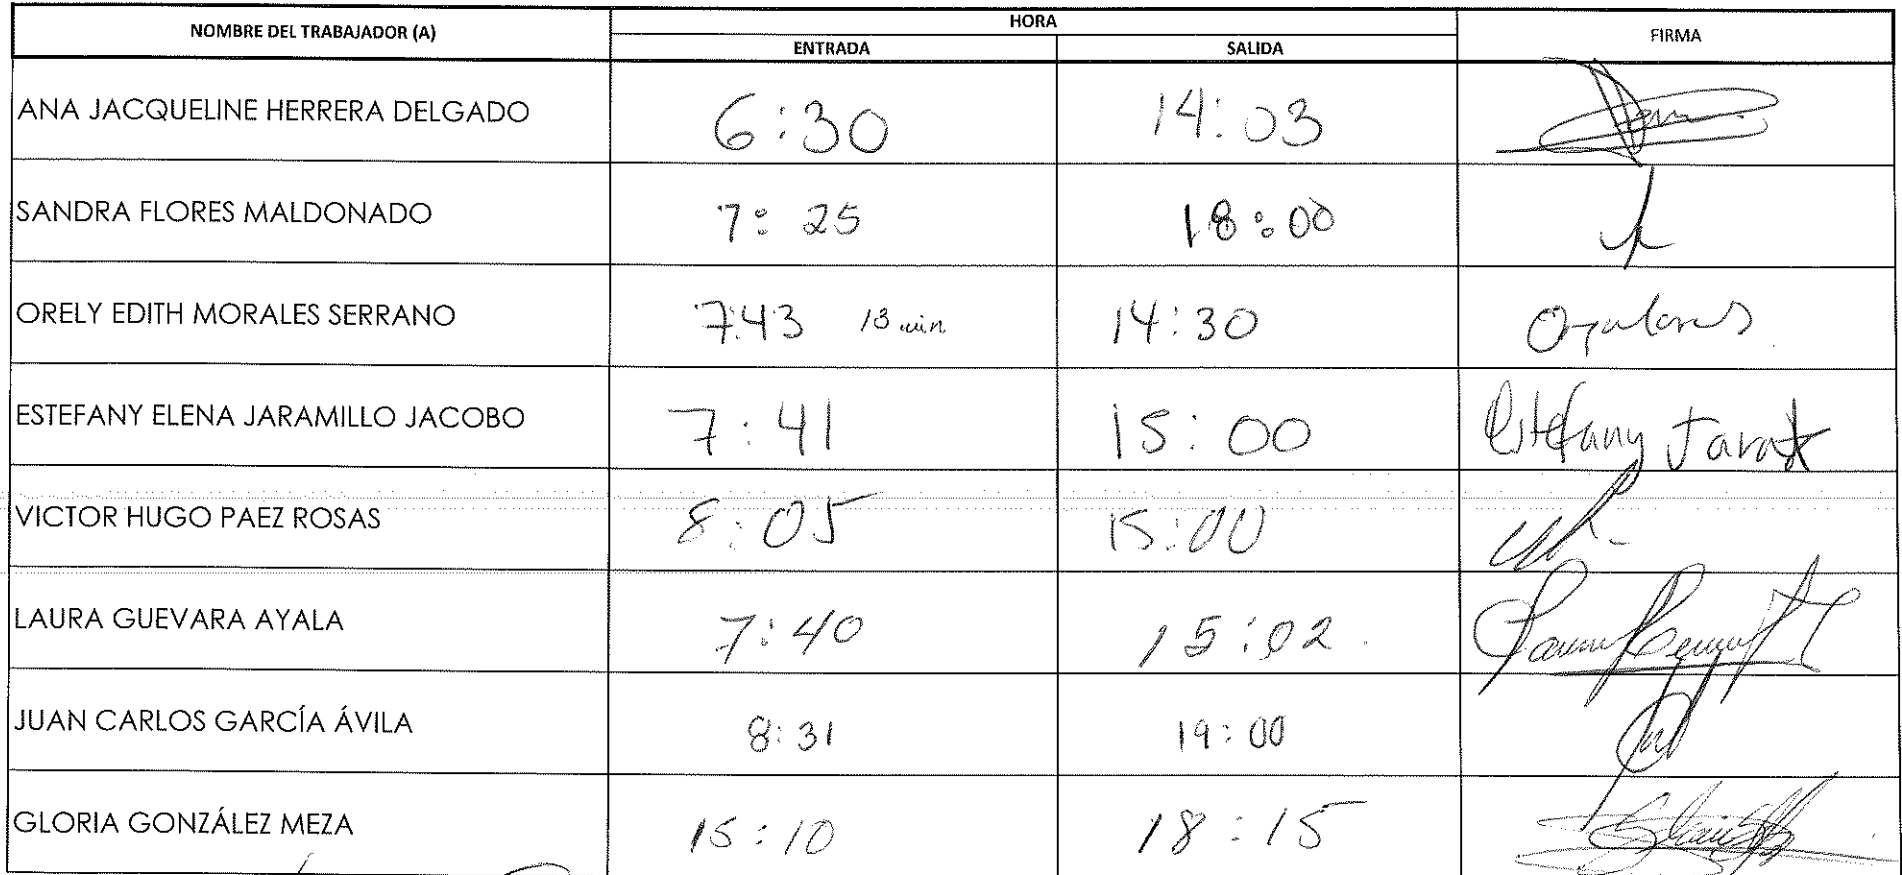 NOMBRE DEL TRABAJADOR (A) HORA FIRMA
ENTRADA SALIDA
ANA JACQUELINE HERRERA DELGADO 6:30 14:03
SANDRA FLORES MALDONADO 7:25 18:00
ORELY EDITH MORALES SERRANO 7:43 13 min 14:30
ESTEFANY ELENA JARAMILLO JACOBO 7:41 15:00 Estefany
VICTOR HUGO PAEZ ROSAS 8:05 15:00
LAURA GUEVARA AYALA 7:40 15:02
JUAN CARLOS GARCÍA ÁVILA 8:31 19:00
GLORIA GONZÁLEZ MEZA 15:10 18:15